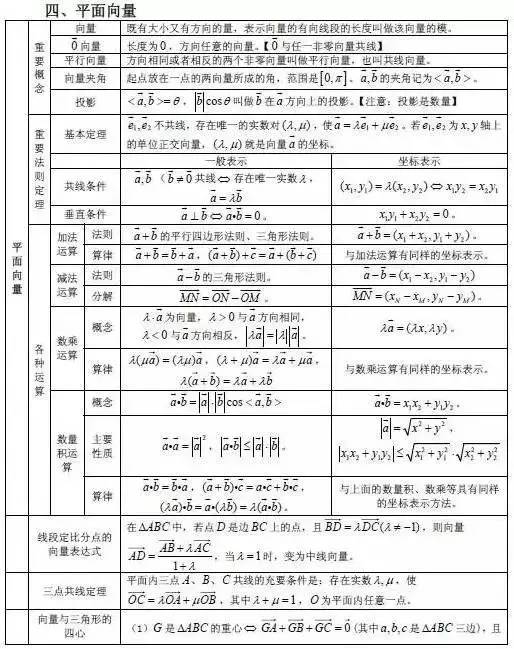 四、平面向量
平面向量
重要概念
向量 既有大小又有方向的量，表示向量的有向线段的长度叫做该向量的模。
$\vec{0}$向量 长度为0，方向任意的向量。【$\vec{0}$与任一非零向量共线】
平行向量 方向相同或者相反的两个非零向量叫做平行向量，也叫共线向量。
向量夹角 起点放在一点的两向量所成的角，范围是$[0,\pi]$。$\vec{a},\vec{b}$的夹角记为$<\vec{a},\vec{b}>$。
投影 $<\vec{a},\vec{b}>=\theta$，$|\vec{b}|\cos\theta$叫做$\vec{b}$在$\vec{a}$方向上的投影。【注意：投影是数量】
重要法则定理
基本定理 $\vec{e}_1,\vec{e}_2$不共线，存在唯一的实数对$(\lambda,\mu)$，使$\vec{a}=\lambda\vec{e}_1+\mu\vec{e}_2$。若$\vec{e}_1,\vec{e}_2$为$x,y$轴上
的单位正交向量，$(\lambda,\mu)$就是向量$\vec{a}$的坐标。
一般表示 坐标表示
共线条件 $\vec{a},\vec{b}$（$\vec{b}\neq\vec{0}$共线$\Leftrightarrow$存在唯一实数$\lambda$，
$\vec{a}=\lambda\vec{b}$ $(x_1,y_1)=\lambda(x_2,y_2)\Leftrightarrow x_1y_2=x_2y_1$
垂直条件 $\vec{a}\perp\vec{b}\Leftrightarrow\vec{a}\bullet\vec{b}=0$。 $x_1y_1+x_2y_2=0$。
各种运算
加法运算
法则 $\vec{a}+\vec{b}$的平行四边形法则、三角形法则。 $\vec{a}+\vec{b}=(x_1+x_2,y_1+y_2)$。
算律 $\vec{a}+\vec{b}=\vec{b}+\vec{a}$，$(\vec{a}+\vec{b})+\vec{c}=\vec{a}+(\vec{b}+\vec{c})$ 与加法运算有同样的坐标表示。
减法运算
法则 $\vec{a}-\vec{b}$的三角形法则。 $\vec{a}-\vec{b}=(x_1-x_2,y_1-y_2)$
分解 $\overrightarrow{MN}=\overrightarrow{ON}-\overrightarrow{OM}$。 $\overrightarrow{MN}=(x_N-x_M,y_N-y_M)$。
数乘运算
概念 $\lambda\cdot\vec{a}$为向量，$\lambda>0$与$\vec{a}$方向相同，
$\lambda<0$与$\vec{a}$方向相反，$|\lambda\vec{a}|=|\lambda||\vec{a}|$。 $\lambda\vec{a}=(\lambda x,\lambda y)$。
算律 $\lambda(\mu\vec{a})=(\lambda\mu)\vec{a}$，$(\lambda+\mu)\vec{a}=\lambda\vec{a}+\mu\vec{a}$，
$\lambda(\vec{a}+\vec{b})=\lambda\vec{a}+\lambda\vec{b}$ 与数乘运算有同样的坐标表示。
数量积运算
概念 $\vec{a}\bullet\vec{b}=|\vec{a}|\cdot|\vec{b}|\cos<\vec{a},\vec{b}>$ $\vec{a}\bullet\vec{b}=x_1x_2+y_1y_2$。
主要性质 $\vec{a}\bullet\vec{a}=|\vec{a}|^2$，$|\vec{a}\bullet\vec{b}|\leq|\vec{a}|\cdot|\vec{b}|$。 $|\vec{a}|=\sqrt{x^2+y^2}$，
$|x_1x_2+y_1y_2|\leq\sqrt{x_1^2+y_1^2}\cdot\sqrt{x_2^2+y_2^2}$
算律 $\vec{a}\bullet\vec{b}=\vec{b}\bullet\vec{a}$，$(\vec{a}+\vec{b})\bullet\vec{c}=\vec{a}\bullet\vec{c}+\vec{b}\bullet\vec{c}$，
$(\lambda\vec{a})\bullet\vec{b}=\vec{a}\bullet(\lambda\vec{b})=\lambda(\vec{a}\bullet\vec{b})$。 与上面的数量积、数乘等具有同样
的坐标表示方法。
线段定比分点的向量表达式
在$\Delta ABC$中，若点$D$是边$BC$上的点，且$\overrightarrow{BD}=\lambda\overrightarrow{DC}(\lambda\neq-1)$，则向量
$\overrightarrow{AD}=\dfrac{\overrightarrow{AB}+\lambda\overrightarrow{AC}}{1+\lambda}$，当$\lambda=1$时，变为中线向量。
三点共线定理
平面内三点$A$、$B$、$C$共线的充要条件是：存在实数$\lambda,\mu$，使
$\overrightarrow{OC}=\lambda\overrightarrow{OA}+\mu\overrightarrow{OB}$，其中$\lambda+\mu=1$，$O$为平面内任意一点。
向量与三角形的四心
（1）$G$是$\Delta ABC$的重心$\Leftrightarrow\overrightarrow{GA}+\overrightarrow{GB}+\overrightarrow{GC}=\vec{0}$（其中$a,b,c$是$\Delta ABC$三边)，且